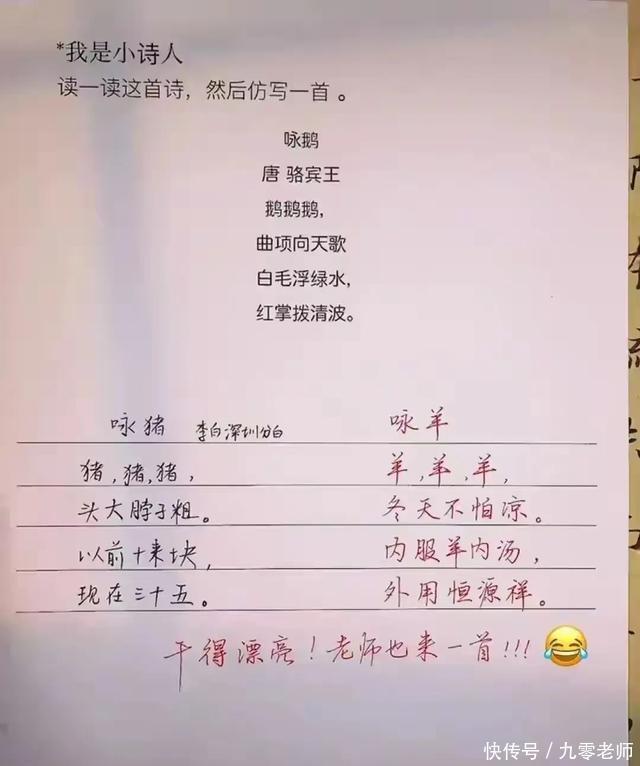 *我是小诗人
读一读这首诗，然后仿写一首 。
咏鹅
唐 骆宾王
鹅鹅鹅，
曲项向天歌
白毛浮绿水，
红掌拨清波。
咏猪 李白深圳分白
猪，猪，猪，
头大脖子粗。
以前十来块，
现在三十五。
咏羊
羊，羊，羊，
冬天不怕凉。
内服羊内汤，
外用恒源祥。
干得漂亮！老师也来一首!!!
快传号／九零老师